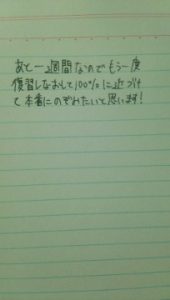 あと一週間なのでもう一度
復習しなおして100%に近づけ
て本番にのぞみたいと思います!